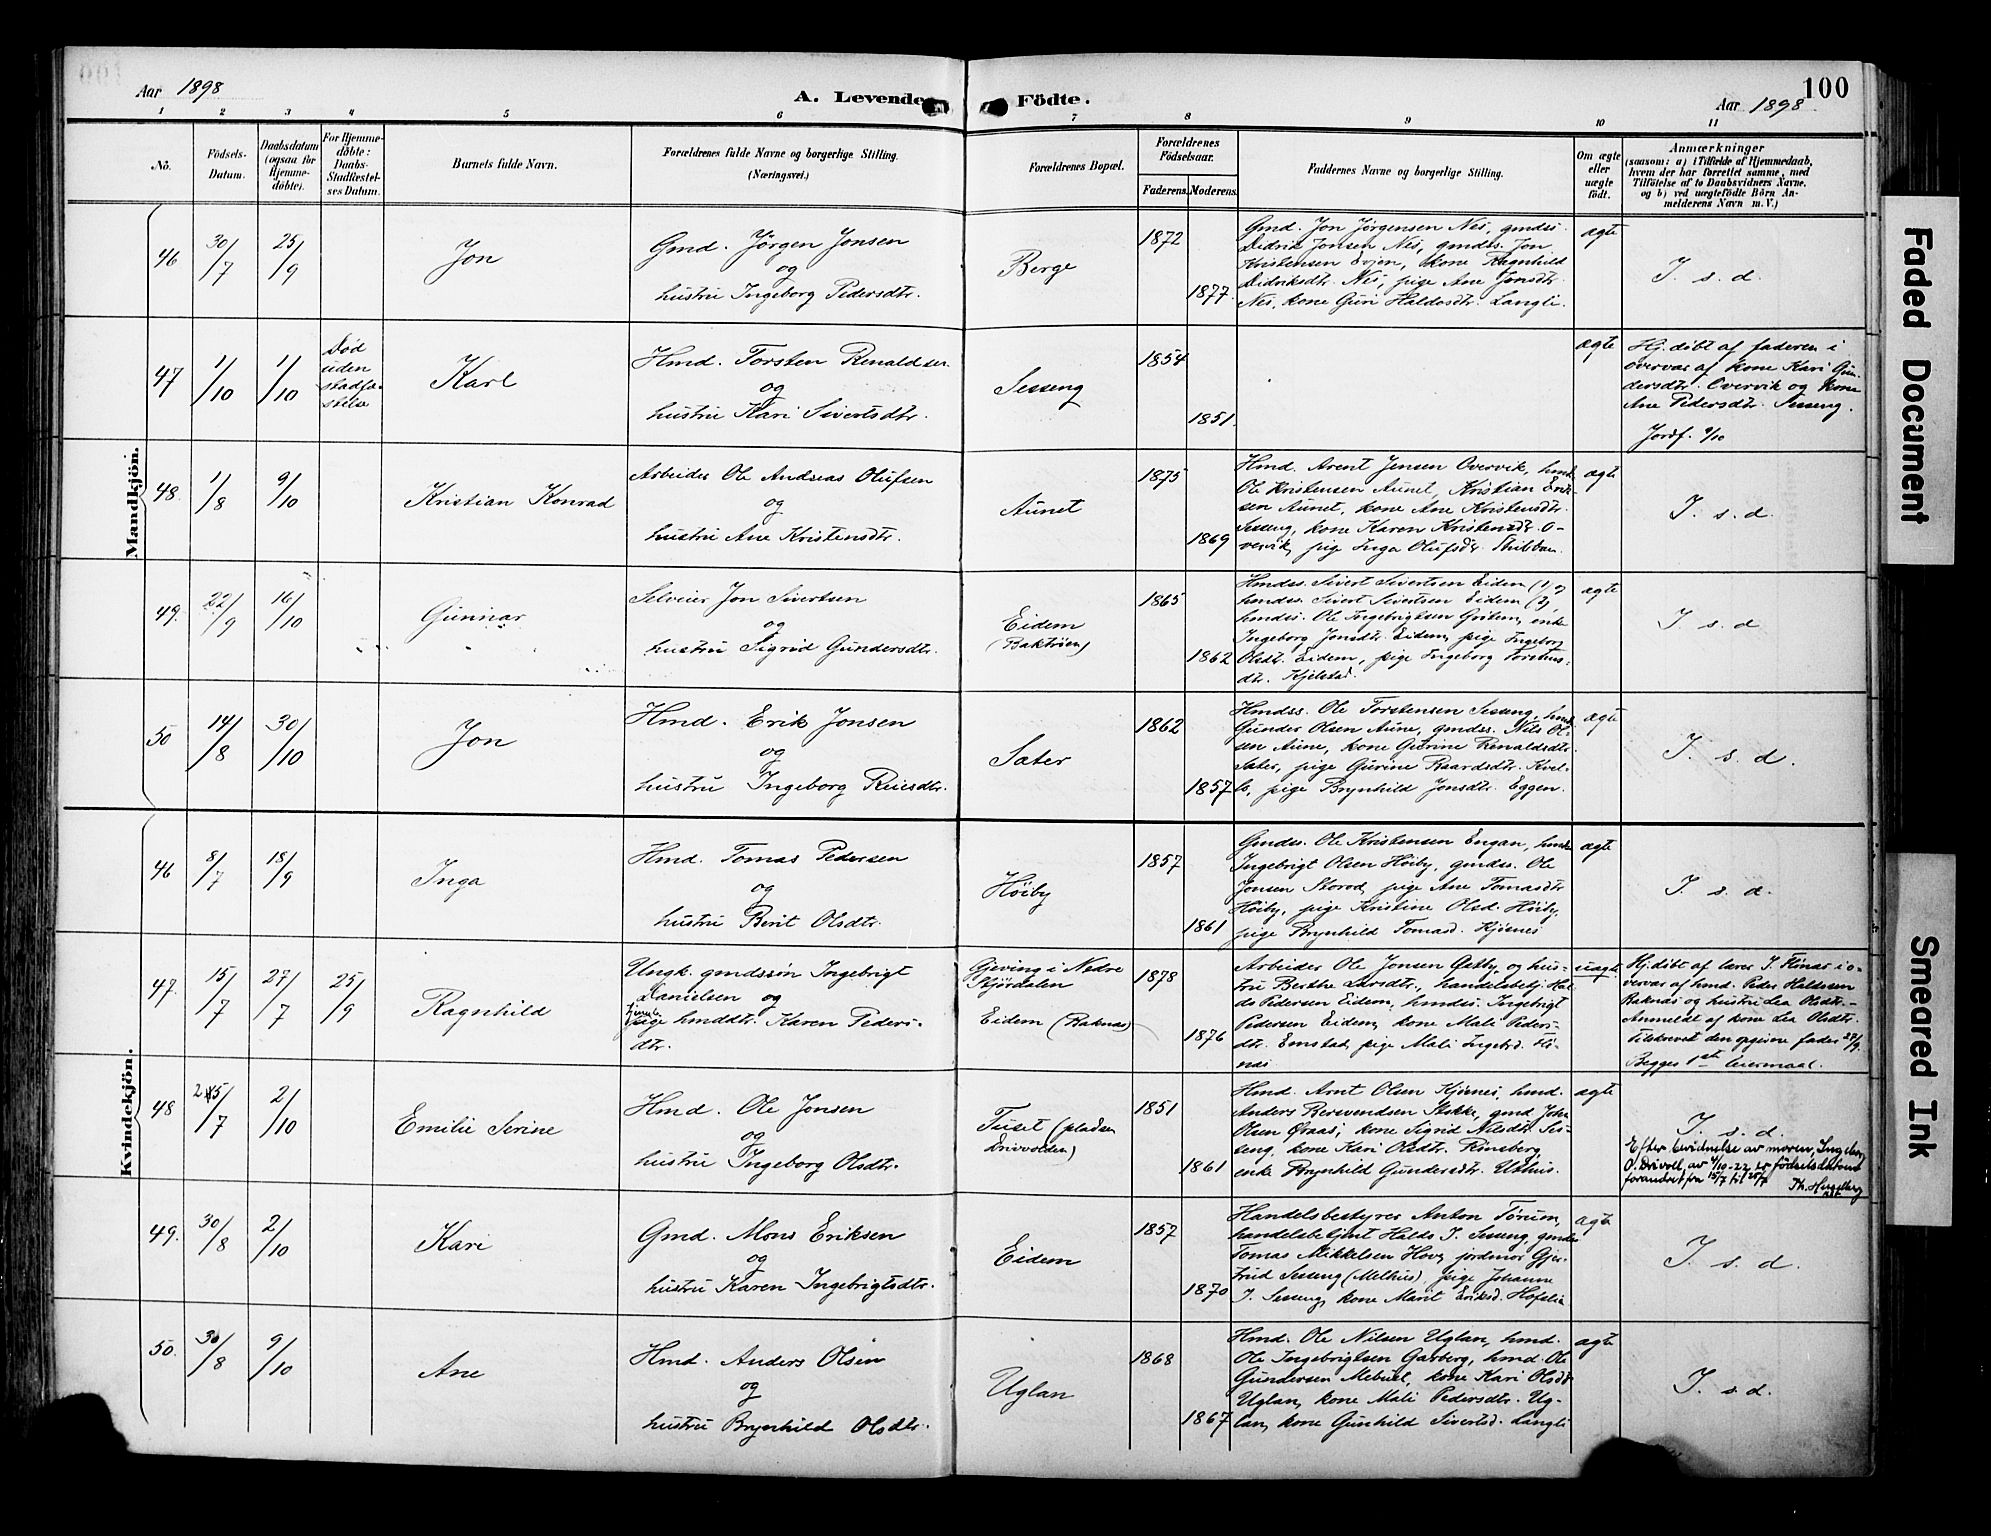 100
Aar 1898
A. Levende Födte.
Aar 1898
1 2 3 4 5 6 7 8 9 10 11
No.
Födsels-
Datum.
Daabsdatum
(ogsaa for
Hjemme-
döbte).
For Hjemme-
döbte:
Daabs-
Stadfæstel-
ses Datum.
Barnets fulde Navn.
Forældrenes fulde Navne og borgerlige Stilling.
(Næringsvei.)
Forældrenes Bopæl.
Forældrenes
Födselsaar.
Faderens. Moderens.
Faddernes Navne og borgerlige Stilling.
Om ægte
eller
uægte
födt.
Anmærkninger
(saasom: a) i Tilfælde af Hjemmedaab,
hvem der har forrettet samme, med
Tilföielse af to Daabsvidners Navne,
og b) ved uægtefödte Börn An-
melderens Navn m. V.)
Mandkjön.
46
30/7
25/9
Jon
Gmd. Jörgen Jonsen
og
hustru Ingeborg Pedersdtr.
Berge
1872
1877
Gmd. Jon Jörgensen Nes, gmdss.
Didrik Jonsen Nes, gmdss. Jon
Kristensen Evjen, kone Ragnhild
Didriksdtr. Nes, pige Ane Jonsdtr.
Nes, kone Guri Haldosdtr. Langli.
ægte
I. s. d.
47
1/10
1/10
Död
uden
stadfæ-
stelse
Karl
Hmd. Torsten Renaldsen
og
hustru Kari Sivertsdtr.
Sesseng
1854
1851.
ægte
Hj.döbt af faderen i
overvær af kone Kari Gun-
dersdtr. Overvik og kone
Ane Pedersdtr. Sesseng.
Jordf. 9/10
48.
1/8
9/10
Kristian Konrad
Arbeider Ole Andreas Olufsen
og
hustru Ane Kristensdtr.
Aunet
1875
1869
Hmd. Arent Jensen Overvik, hmd.
Ole Kristensen Aunet, Kristian Erik-
sen Aunet, kone Ane Kristensdtr.
Sesseng, kone Karen Kristensdtr. O-
vervik, pige Inga Olufsdtr.
ægte
I. s. d.
49.
22/9
16/10
Gunnar
Selveier Jon Sivertsen
og
hustru Sigrid Gundersdtr.
Eidem
(Baktrøen)
1865
1862
Hmdss. Sivert Sivertsen Eidem (1),
hmdss. Sivert Sivertsen Eidem (2),
hmdss. Ole Ingebrigtsen, enke
Ingeborg Jonsdtr. Eidem, pige Ingeborg
Olsdtr. Eidem, pige Ingeborg Torstens-
dtr. Kjelstad.
ægte
I. s. d.
50
14/8
30/10
Jon
Hmd. Erik Jonsen
og
hustru Ingeborg
Sæter
1862
1857
Hmdss. Ole Torstensen Sesseng, hmd.
Gunder Olsen Aune, gmdss. Nils Ol-
sen Aune, kone Gurine Renaldsdtr.
Sæter, pige Gurine Kvel-
lo, pige Brynhild Jonsdtr. Eggen.
ægte
I. s. d.
Kvindekjön.
46
8/7
18/9
Inga
Hmd. Tomas Pedersen
og
hustru Berit Olsdtr.
Höiby
1857
1861
Gmdss. Ole Kristensen Engan, hmd.
Ingebrigt Olsen Höiby, gmdss. Ole
Jonsen, pige Ane Tomasdtr.
Höiby, pige Kristine Olsd. Höiby,
pige Brynhild Tomasd. Kjösnes
ægte
I. s. d.
47.
15/7
27/7
25/9
Ragnhild
Ungk. gmdssön Ingebrigt
Danielsen og
pige hmddtr. Karen Peders-
dtr.
Gjeving i Nedre
Stjördalen
Eidem (Baknæs)
1878
1876
Arbeider Ole Jonsen og hus-
tru Berthe Larsdtr.,
Pedersen Eidem, hmdss. Ingebrigt
Pedersen Eidem, kone Mali Peders-
dtr. Emstad, pige Mali
uægte
Hj.döbt af lærer J. Flnæs i o-
vervær af hmd. Peder Haldosen
Baknæs og hustru Lea Olsdtr.-
Anmeldt af kone Lea Olsdtr.
Tilskrevet den opgivne fader 27/9.
Begges 1ste leiermaal.
48
25/7
2/10
Emilie Serine
Hmd. Ole Jonsen
og
hustru Ingeborg Olsdtr.
Tuset (pladsen
Drivvolden)
1851
1861
Hmd. Arnt Olsen Kjösnes, hmd.
Anders Stokke, gmd. Johan
Olsen, kone Sigrid Nilsdtr. Ses-
seng, kone Kari Olsdtr. Rinsberg,
enke Brynhild Gundersdtr.
ægte
I. s. d.
Efter bevidnelse av moren, Ingeborg
O. Drivoll, av 4/10-22 er födselsdatoen
forandret fra 15/7 til 25/7
49.
30/8
2/10
Kari
Gmd. Mons Eriksen
og
hustru Karen Ingebrigtsdtr.
Eidem
1857
1870
Handelsbestyrer Anton Törum,
handelsbetjent Haldo J. Sesseng, gmdss.
Tomas Mikkelsen Hove, jordmor Gjer-
trud Sesseng (Melhus), pige Johanne
J. Sesseng, kone Marit Eriksd. Hofslia
ægte
I. s. d.
50.
30/8
9/10
Ane
Hmd. Anders Olsen
og
hustru Brynhild Olsdtr.
Uglan
1868
1867
Hmd. Ole Nilsen Uglan, hmd.
Ole Ingebrigtsen Garberg, hmd. Ole
Gundersen, kone Kari Olsdtr
Uglan, kone Mali Pedersdtr. Ug-
lan, kone Gunhild Sivertsd. Langli
ægte
I. s. d.
Faded Document
Smeared Ink